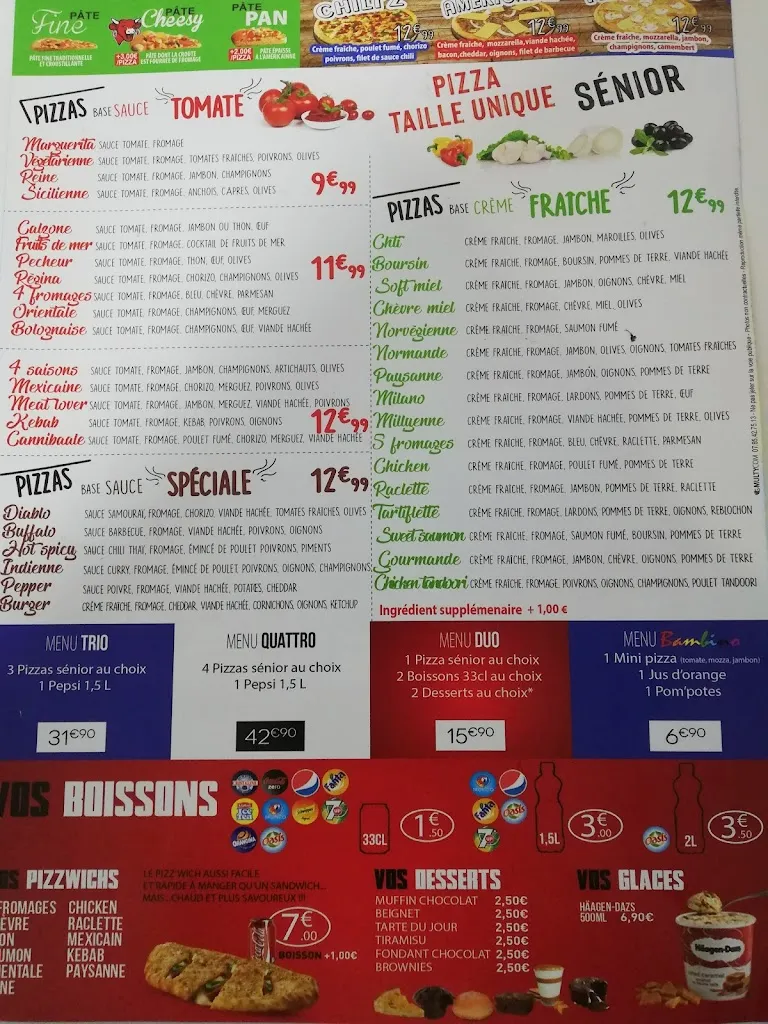 PÂTE
Fine
PÂTE FINE TRADITIONNELLE
ET CROUSTILLANTE
PÂTE
Cheesy
+3.00€
/PIZZA
PÂTE DONT LA CROUTE
EST FOURRÉE DE FROMAGE
PÂTE
PAN
+2.00€
/PIZZA
PÂTE ÉPAISSE
À L'AMÉRICAINE
12€99
Crème fraiche, poulet fumé, chorizo
poivrons, filet de sauce chili
12€99
Crème fraiche, mozzarella, viande hachée,
bacon, cheddar, oignons, filet de barbecue
12€99
Crème fraiche, mozzarella, jambon,
champignons, camembert
PIZZAS BASE SAUCE TOMATE
PIZZA
TAILLE UNIQUE SÉNIOR
Marguerita SAUCE TOMATE, FROMAGE
Végétarienne SAUCE TOMATE, FROMAGE, TOMATES FRAICHES, POIVRONS, OLIVES
Reine SAUCE TOMATE, FROMAGE, JAMBON, CHAMPIGNONS
Sicilienne SAUCE TOMATE, FROMAGE, ANCHOIS, CAPRES, OLIVES
9€99
Calzone SAUCE TOMATE, FROMAGE, JAMBON OU THON, ŒUF
Fruits de mer SAUCE TOMATE, FROMAGE, COCKTAIL DE FRUITS DE MER
Pecheur SAUCE TOMATE, FROMAGE, THON, ŒUF, OLIVES
Régina SAUCE TOMATE, FROMAGE, CHORIZO, CHAMPIGNONS, OLIVES
4 fromages SAUCE TOMATE, FROMAGE, BLEU, CHÈVRE, PARMESAN
Orientale SAUCE TOMATE, FROMAGE, CHAMPIGNONS, ŒUF, MERGUEZ
Bolognaise SAUCE TOMATE, FROMAGE, CHAMPIGNONS, ŒUF, VIANDE HACHÉE
11€99
4 saisons SAUCE TOMATE, FROMAGE, JAMBON, CHAMPIGNONS, ARTICHAUTS, OLIVES
Mexicaine SAUCE TOMATE, FROMAGE, CHORIZO, MERGUEZ, POIVRONS, OLIVES
Meat lover SAUCE TOMATE, FROMAGE, JAMBON, MERGUEZ, VIANDE HACHÉE, POIVRONS
Kebab SAUCE TOMATE, FROMAGE, KEBAB, POIVRONS, OIGNONS
Cannibaale SAUCE TOMATE, FROMAGE, POULET FUMÉ, CHORIZO, MERGUEZ, VIANDE HACHÉE
12€99
PIZZAS BASE SAUCE SPÉCIALE 12€99
Diablo SAUCE SAMOURAÏ, FROMAGE, CHORIZO, VIANDE HACHÉE, TOMATES FRAICHES, OLIVES
Buffalo SAUCE BARBECUE, FROMAGE, VIANDE HACHÉE, POIVRONS, OIGNONS
Hot spicy SAUCE CHILI THAI, FROMAGE, ÉMINCÉ DE POULET POIVRONS, PIMENTS
Indienne SAUCE CURRY, FROMAGE, ÉMINCÉ DE POULET POIVRONS, OIGNONS, CHAMPIGNONS
Pepper SAUCE POIVRE, FROMAGE, VIANDE HACHÉE, POTATES, CHEDDAR
Burger CRÈME FRAICHE, FROMAGE, CHEDDAR, VIANDE HACHÉE, CORNICHONS, OIGNONS, KETCHUP
PIZZAS BASE CRÈME FRAICHE 12€99
Chti CRÈME FRAICHE, FROMAGE, JAMBON, MAROILLES, OLIVES
Boursin CRÈME FRAICHE, FROMAGE, BOURSIN, POMMES DE TERRE, VIANDE HACHÉE
Soft miel CRÈME FRAICHE, FROMAGE, JAMBON, OIGNONS, CHÈVRE, MIEL
Chèvre miel CRÈME FRAICHE, FROMAGE, CHÈVRE, MIEL, OLIVES
Norvégienne CRÈME FRAICHE, FROMAGE, SAUMON FUMÉ
Normande CRÈME FRAICHE, FROMAGE, JAMBON, OLIVES, OIGNONS, TOMATES FRAICHES
Paysanne CRÈME FRAICHE, FROMAGE, JAMBON, OIGNONS, POMMES DE TERRE
Milano CRÈME FRAICHE, FROMAGE, LARDONS, POMMES DE TERRE, ŒUF
Millyenne CRÈME FRAICHE, FROMAGE, VIANDE HACHÉE, POMMES DE TERRE, OLIVES
5 fromages CRÈME FRAICHE, FROMAGE, BLEU, CHÈVRE, RACLETTE, PARMESAN
Chicken CRÈME FRAICHE, FROMAGE, POULET FUMÉ, POMMES DE TERRE
Raclette CRÈME FRAICHE, FROMAGE, JAMBON, POMMES DE TERRE, RACLETTE
Tartiflette CRÈME FRAICHE, FROMAGE, LARDONS, POMMES DE TERRE, OIGNONS, REBLOCHON
Sweet saumon CRÈME FRAICHE, FROMAGE, SAUMON FUMÉ, BOURSIN, POMMES DE TERRE
Gourmande CRÈME FRAICHE, FROMAGE, JAMBON, CHÈVRE, OIGNONS, POMMES DE TERRE
Chicken tandoori CRÈME FRAICHE, FROMAGE, POIVRONS, OIGNONS, CHAMPIGNONS, POULET TANDOORI
Ingrédient supplémenaire + 1,00 €
MENU TRIO
3 Pizzas sénior au choix
1 Pepsi 1,5 L
31€90
MENU QUATTRO
4 Pizzas sénior au choix
1 Pepsi 1,5 L
42€90
MENU DUO
1 Pizza sénior au choix
2 Boissons 33cl au choix
2 Desserts au choix*
15€90
MENU Bambino
1 Mini pizza (tomate, mozza, jambon)
1 Jus d'orange
1 Pom'potes
6€90
VOS BOISSONS
33CL
1€.50
1,5L
3€.00
2L
3€.50
PIZZWICHS
LE PIZZ'WICH AUSSI FACILE
ET RAPIDE À MANGER QU'UN SANDWICH...
MAIS... CHAUD ET PLUS SAVOUREUX !!!
FROMAGES
CHICKEN
RACLETTE
MEXICAIN
KEBAB
PAYSANNE
7€.00
BOISSON +1,00€
VOS DESSERTS
MUFFIN CHOCOLAT 2,50€
BEIGNET 2,50€
TARTE DU JOUR 2,50€
TIRAMISU 2,50€
FONDANT CHOCOLAT 2,50€
BROWNIES 2,50€
VOS GLACES
HÄAGEN-DAZS
500ML 6,90€
Häagen-Dazs